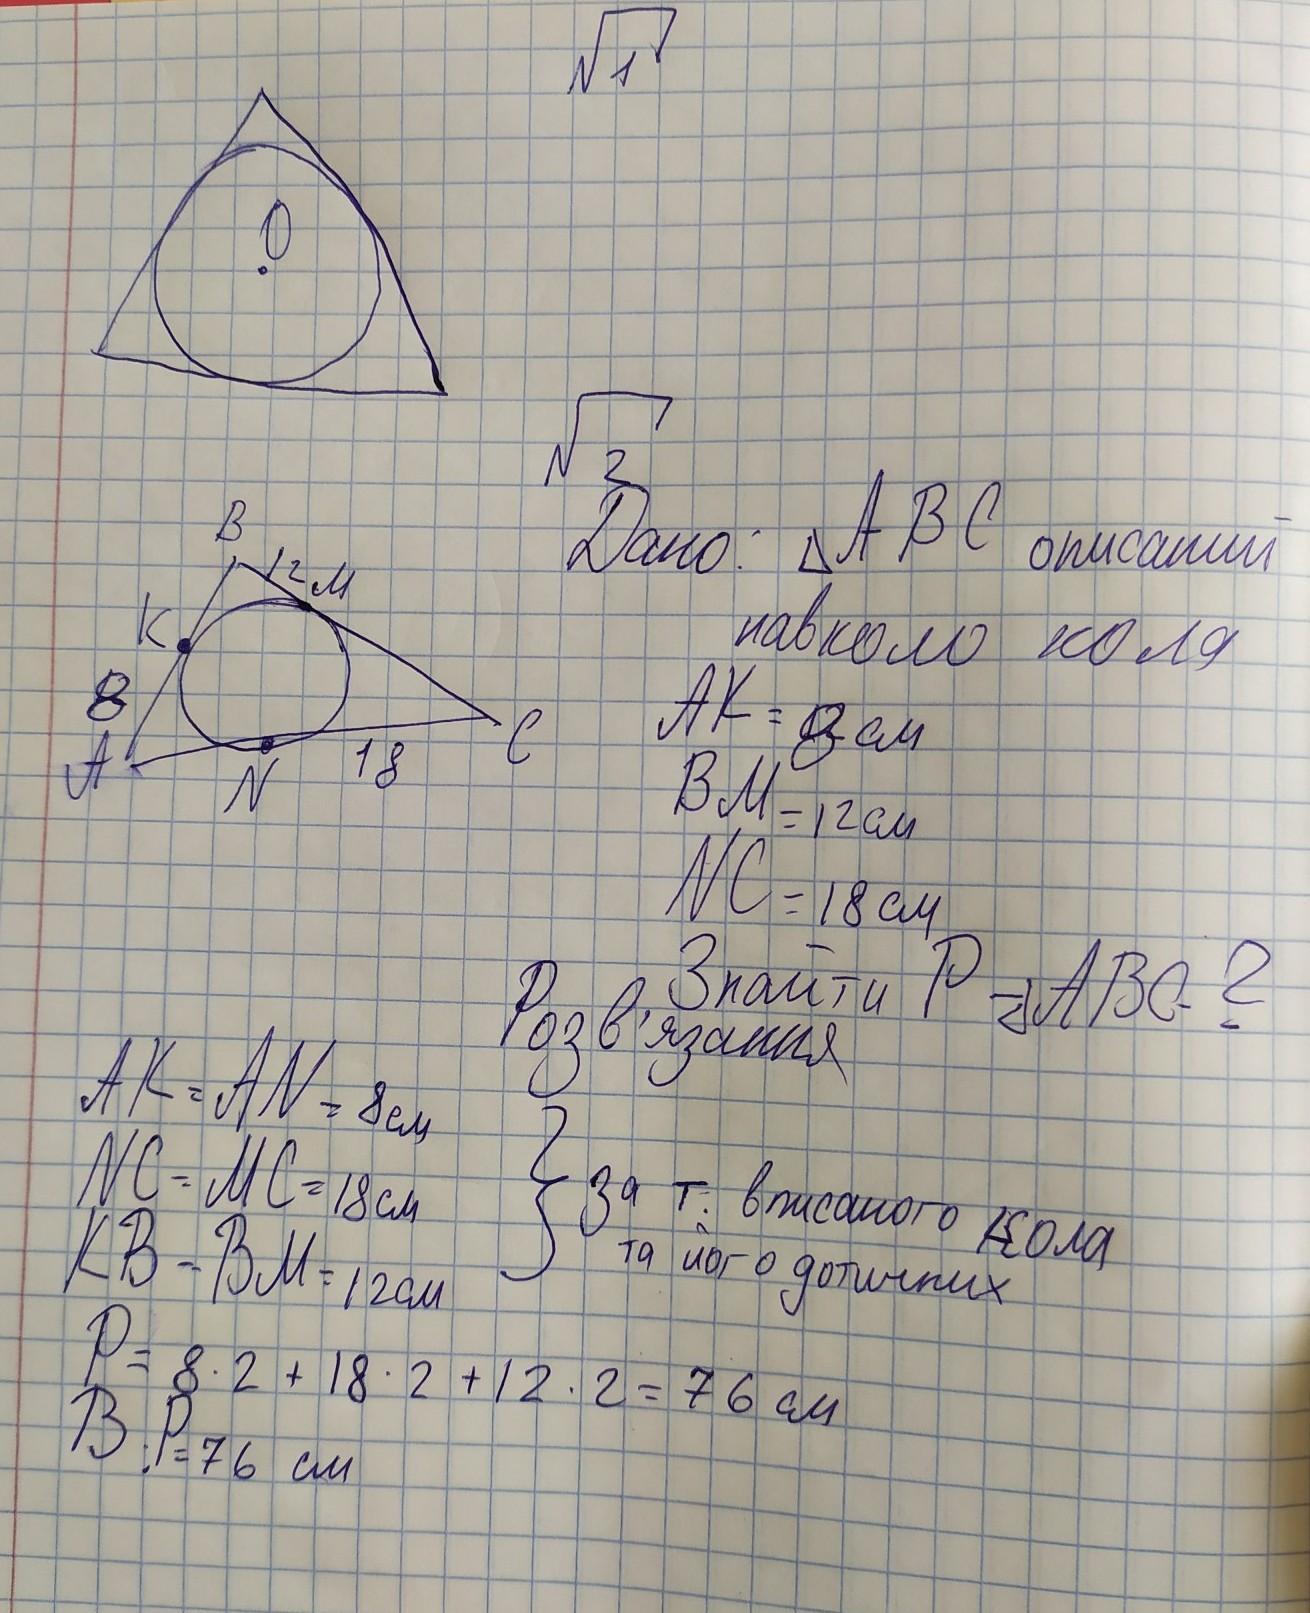 №1
O
№2
B
12 M
K
8
A
N
18
C
Дано: △ABC описаний
навколо кола
AK = 8 см
BM = 12 см
NC = 18 см
Знайти P = △ABC - ?
Розв'язання
AK = AN = 8 см
NC = MC = 18 см
KB = BM = 12 см
} За т. вписаного кола
та його дотичних
P = 8 · 2 + 18 · 2 + 12 · 2 = 76 см
В: P = 76 см